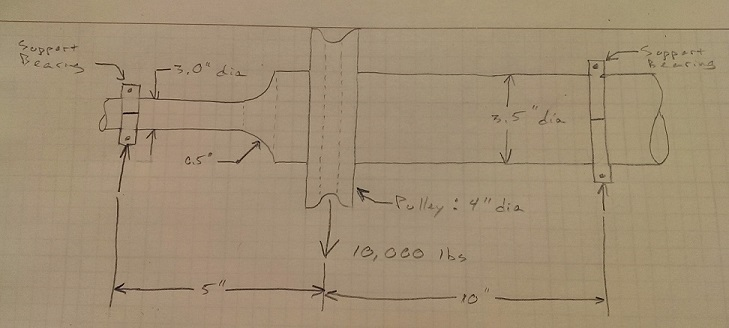 Support
Bearing
3.0" dia
Support
Bearing
3.5" dia
0.5"
Pulley: 4" dia
10,000 lbs
5"
10"